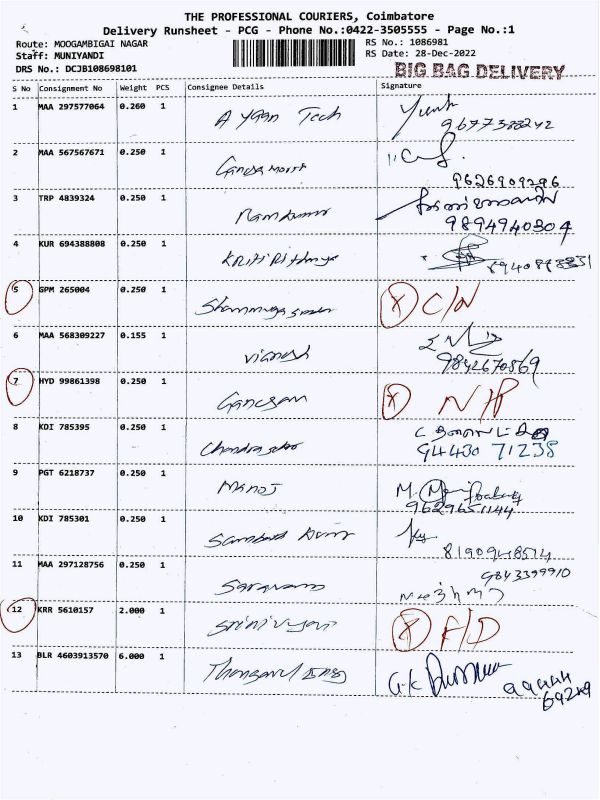 THE PROFESSIONAL COURIERS, Coimbatore
Delivery Runsheet - PCG - Phone No.:0422-3505555 - Page No.:1
Route: MOOGAMBIGAI NAGAR
Staff: MUNIYANDI
DRS No.: DCJB108698101
RS No.: 1086981
RS Date: 28-Dec-2022
BIG BAG DELIVERY
S No Consignment No Weight PCS Consignee Details Signature
1 MAA 297577064 0.260 1 A Yaan Tech
9677388242
2 MAA 567567671 0.250 1
9626909296
3 TRP 4839324 0.250 1 Ramkumar
9894940304
4 KUR 694388808 0.250 1
5 GPM 265004 0.250 1 X C/N
6 MAA 568309227 0.155 1 Vignesh
9842670569
7 HYD 99861398 0.250 1 Ganesan X N/P
8 KDI 785395 0.250 1 Chandrasekar
94430 71238
9 PGT 6218737 0.250 1 Manoj
9629651144
10 KDI 785301 0.250 1
8190948514
11 MAA 297128756 0.250 1 Saravanan 9843399910
12 KRR 5610157 2.000 1 X F/D
13 BLR 4603913570 6.000 1 G.K